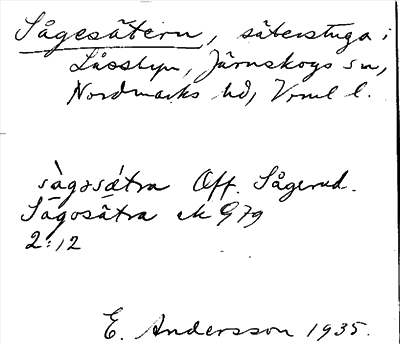 Sågesätern, säterstuga i
Låsstyn, Järnskogs sn,
Nordmarks hd, Vrml l.
sågosätra Off. Sågerud.
Sågosätra ek G 79
2:12
E. Andersson 1935.